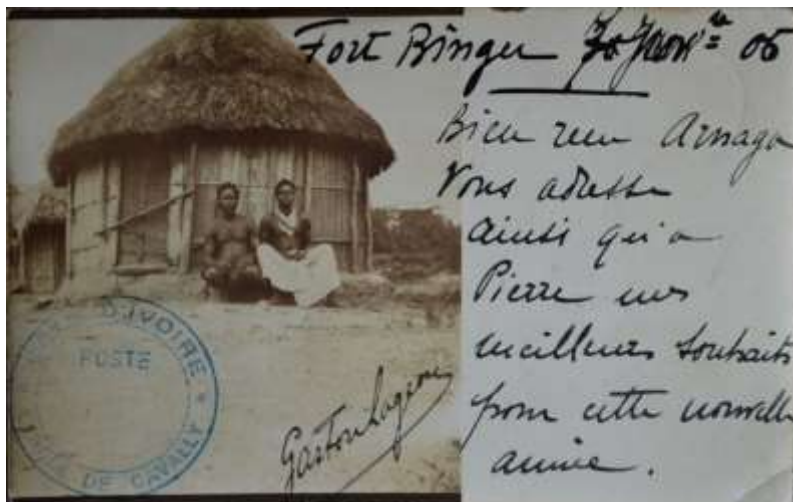 Fort Binger 30 Janv 06
Bien reçu
Vous adresse
ainsi qu'a
Pierre mes
meilleurs souhaits
pour cette nouvelle
année.
Gaston
D'IVOIRE
POSTE
DE CAVALLY